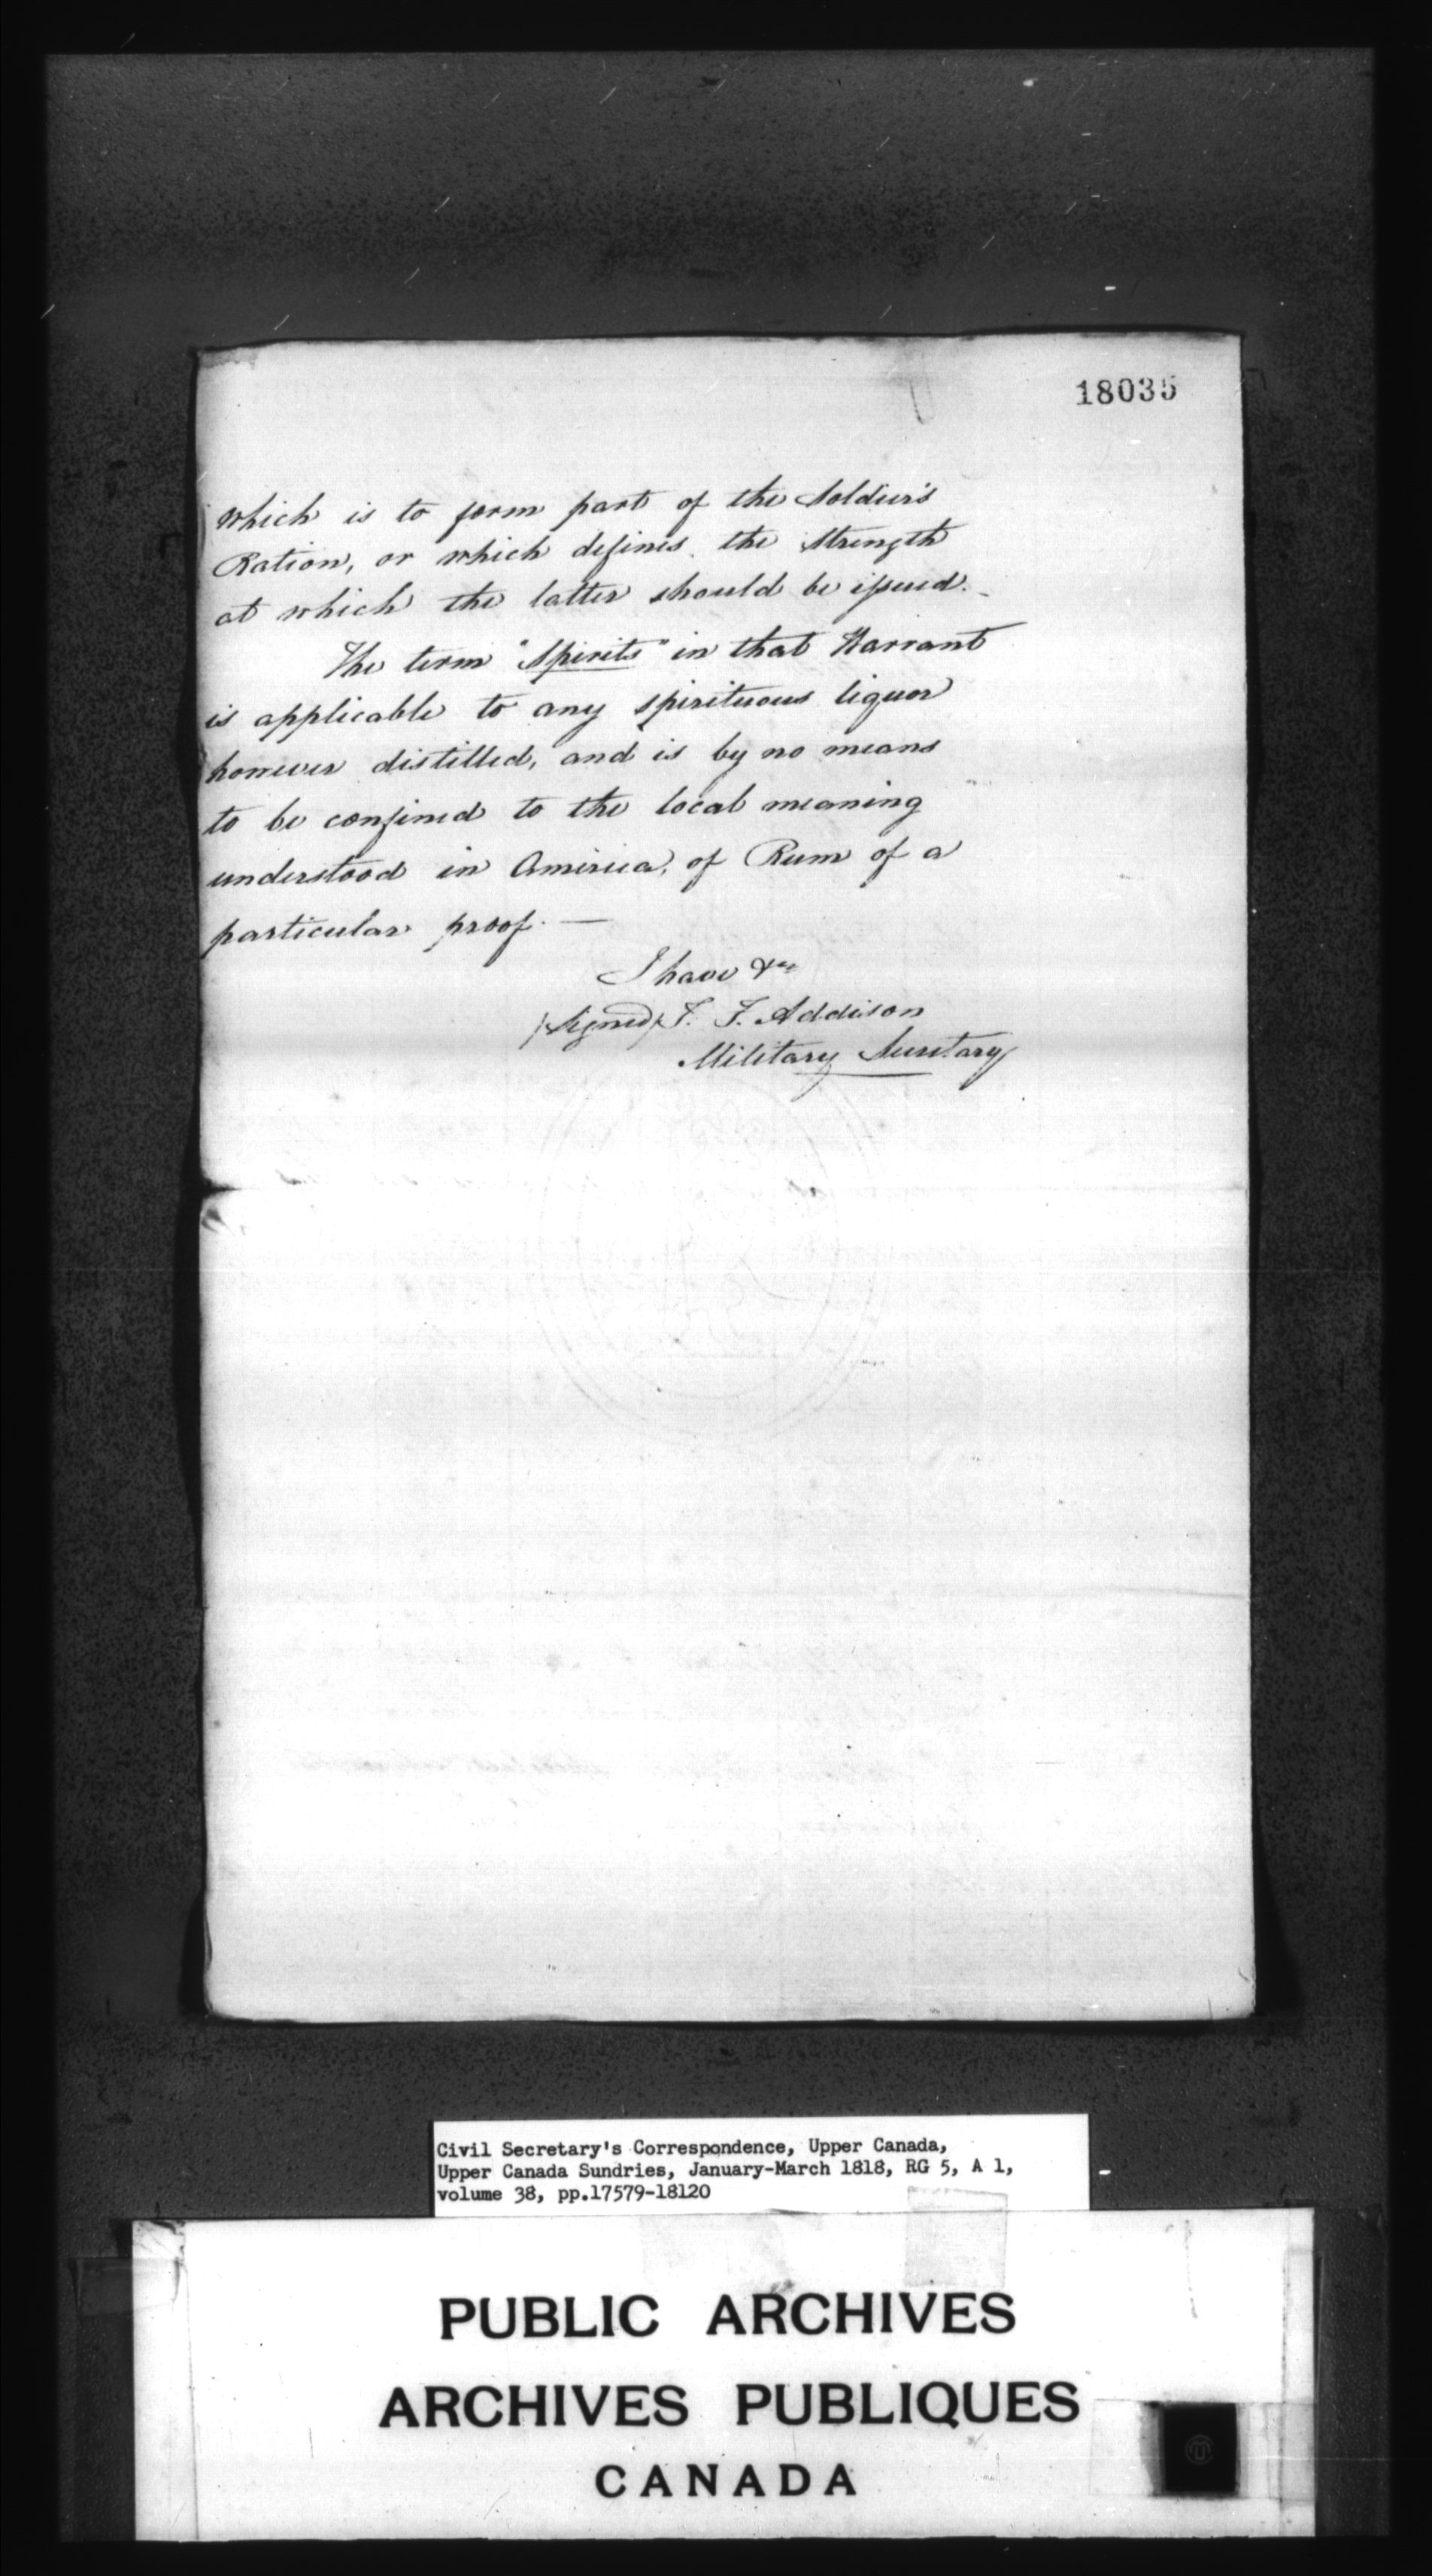 18035
which is to form part of the Soldier's
Ration, or which defines the Strength
at which the latter should be issued.
The term "Spirits" in that Warrant
is applicable to any spirituous liquor
however distilled, and is by no means
to be confined to the local meaning
understood in America, of Rum of a
particular proof. —
I have &c
(Signed) T. F. Addison
Military Secretary
Civil Secretary's Correspondence, Upper Canada,
Upper Canada Sundries, January-March 1818, RG 5, A 1,
volume 38, pp.17579-18120
PUBLIC ARCHIVES
ARCHIVES PUBLIQUES
CANADA